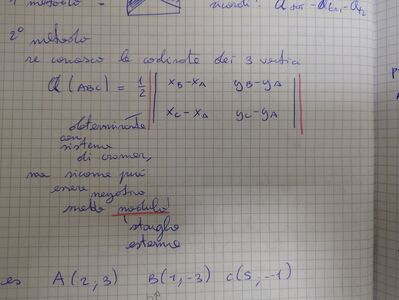 1° metodo =
ricordi:
2° metodo
se conosco le codinate dei 3 vertici
A (ABC) = 1/2 | xB-xA yB-yA |
xC-xA yC-yA
determinante
con
sistema
di cramer,
ma siccome può
essere negativo
metto modulo
'stanghe
esterne
es A(2;3) B(1,-3) C(5,-1)